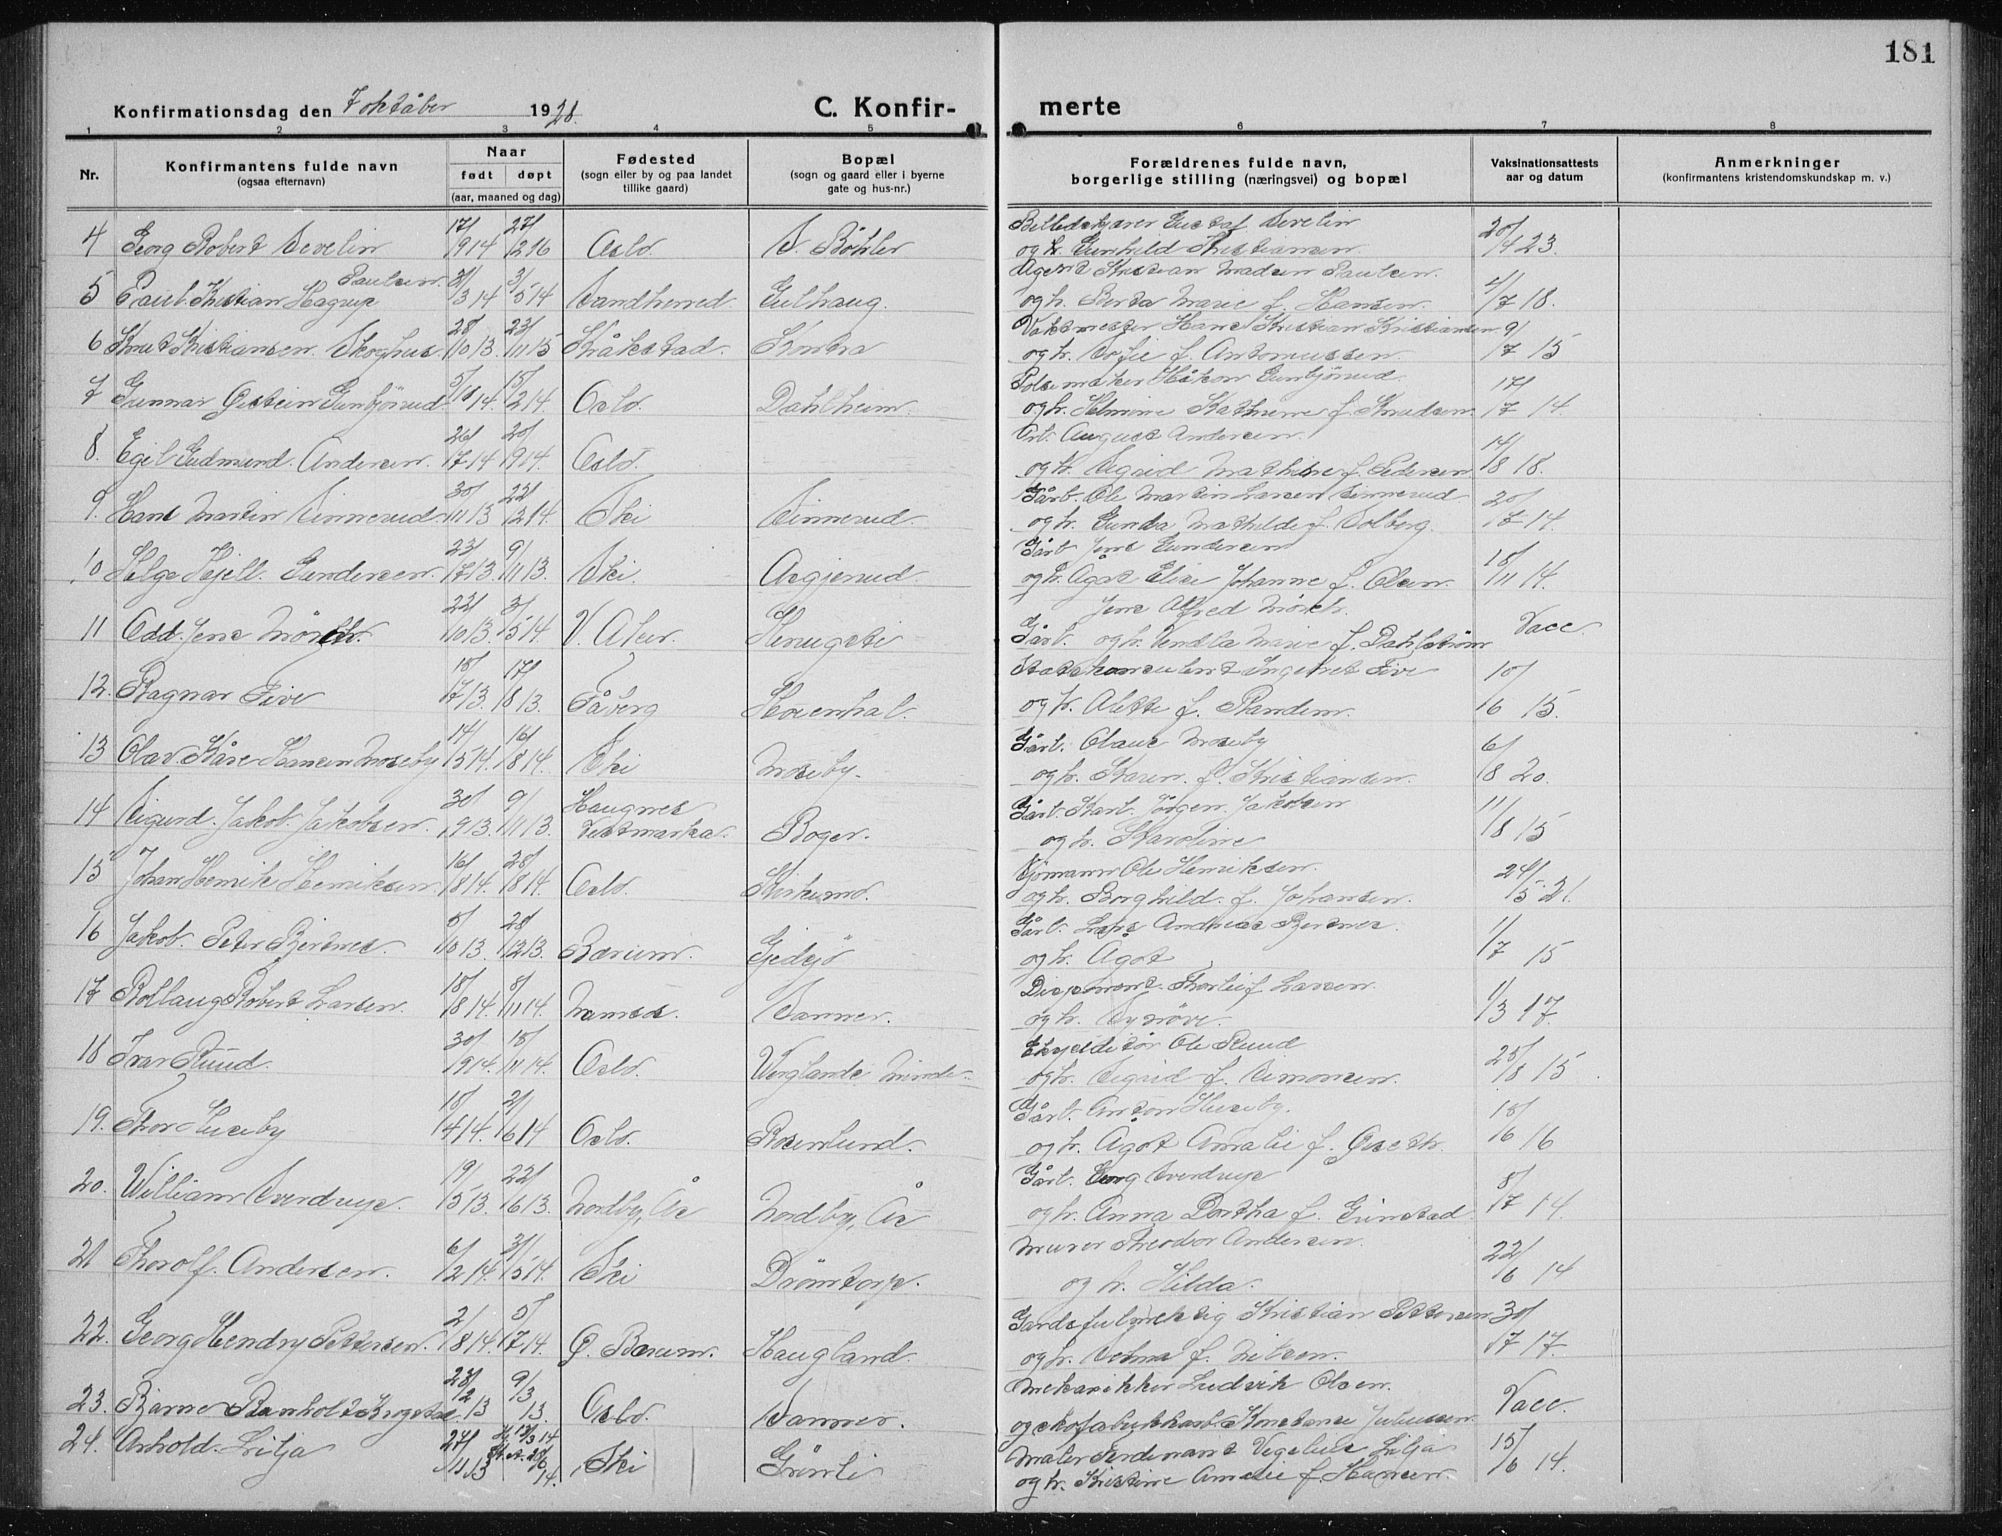 181
Konfirmationsdag den 7 oktåber 1928.
C. Konfir-
merte
1 2 3 4 5 6 7 8
Nr.
Konfirmantens fulde navn
(ogsaa efternavn)
Naar
født døpt
(aar, maaned og dag)
Fødested
(sogn eller by og paa landet
tillike gaard)
Bopæl
(sogn og gaard eller i byerne
gate og hus-nr.)
Forældrenes fulde navn,
borgerlige stilling (næringsvei) og bopæl
Vaksinationsattests
aar og datum
Anmerkninger
(konfirmantens kristendomskundskap m. v.)
4 Georg Robert Sevelin 17/9 14 27/12 16 Oslo. S. Bøhler
Billedskjærer Gustaf Sevelin
og h. Gunhild Kristiansen. 20/4 23.
5 Paul Kristian Hagrup Paulsen 31/3 14 3/5 14 Sandherred. Gulhaug.
Agent Kristian Madsen Paulsen
og h. Berta Marie f. Hansen. 4/7 18.
6 Knut Kristiansen Skoghus 28/10 13. 23/11 15 Kråkstad. Kontra
Vaktmester Hans Kristian Kristiansen
og h. Sofie f. Antonussen. 9/7 15
7 Gunnar Øistein Gunbjörud 5/1 14. 15/2 14. Oslo. Dahlheim.
Pølsemaker Håkon Gunbjörud
og h. Helmine Kathrine f. Knudsen. 17/7 14.
8. Egil Gudmund. Andersen. 26/7 14 20/9 14. Oslo.
Arb. August Andersen.
og h. Sigrid Mathilde f. Pedersen 14/8 18.
9. Hans Martin Sinnerud. 30/11 13 22/2 14. Ski Sinnerud.
Gårb. Ole Martin Larsen Sinnerud
og h. Gunda Mathilde f. Solberg. 20/7 14.
10 Helge Kjell. Gundersen. 23/7 13. 9/11 13. Ski. Asgjerud.
Gårb Jens Gundersen
og h. Ågot Elise Johanne f. Olsen. 18/11 14.
11 Odd. Jens Mörch. 22/10 13. 3/5 14. V. Aker. Haugeti
Jens Alfred Mörch.
Gårb. og h. Vendla Marie f. Dahlström Vacc.
12. Ragnar Five 18/7 13. 17/8 13. Fåberg Horenhal.
Statskonsulent Ingebret Five
og h. Alette f. Randem. 10/6 15.
13 Olav Kåre Hansen Moseby 14/5 14. 16/8 14. Ski Moseby.
Gårb. Olaus Moseby
og h. Karen. f. Kristiansen. 6/8 20.
14 Sigurd. Jakob. Jakobsen. 30/9 13. 9/11 13. Haugnes Vestmarka. Boger.
Gårb. Karl. Jörgen Jakobsen
og h. Karoline 11/8 15
15 Johan Henrik Henriksen. 16/8 14. 28/8 14. Oslo. Kirkemo.
Sjömann Ole Henriksen.
og h. Borghild. f. Johansen. 24/5 21.
16 Jakob. Peter Bjertnes. 5/10 13. 28/12 13. Bærum. Gjedsjö
Gårb. Lars Andreas Bjertnes.
og h. Ågot 1/7 15
17 Rollaug Robert Larsen. 18/8 14. 8/11 14. Namsos. Sanner.
Disponent. Thorleif Larsen.
og h. Synöve. 1/3 17.
18 Ivar Ruud. 30/9 14. 18/11 14. Oslo. Werglands Minde.
Ekspeditör Ole Ruud
og h. Sigrid f. Simonsen. 25/8 15.
19. Thor Huseby 18/4 14. 21/6 14 Oslo. Rosenlund.
Gårb. Anton Huseby.
og h. Ågot Amalie f. Qiseth. 18/6 16
20. William Sverdrup. 19/5 13. 22/6 13. Nordby, Ås Nordby, Ås
Gårb. Georg Sverdrup
og h. Anna Dorthea f. Grimstad. 8/7 14.
21 Thorolf. Andersen. 6/2 14. 31/5 14. Ski Drömtorp.
Murer Theodor Andersen.
og h. Hilda. 22/6 14
22. Georg Hendry Pettersen. 2/8 14. 5/7 14. Ø. Bærum. Haugland.
Gardsfulmektig Kristian Pettersen
og h. Selma f. Nilsen. 30/7 17.
23. Bjarne Ranholt Krogstad 23/2 13 9/3 13. Oslo. Sanner.
Mekanikker Ludvik Olsen.
og skofabrikkarb. Konstanse Juliussen. Vacc.
24. Arhold. Lilja 27/11 13 Ski Grönli
Maler Ferdinant Vigelius Lilja
og h. Kristine Amalie f. Hansen. 15/6 14.